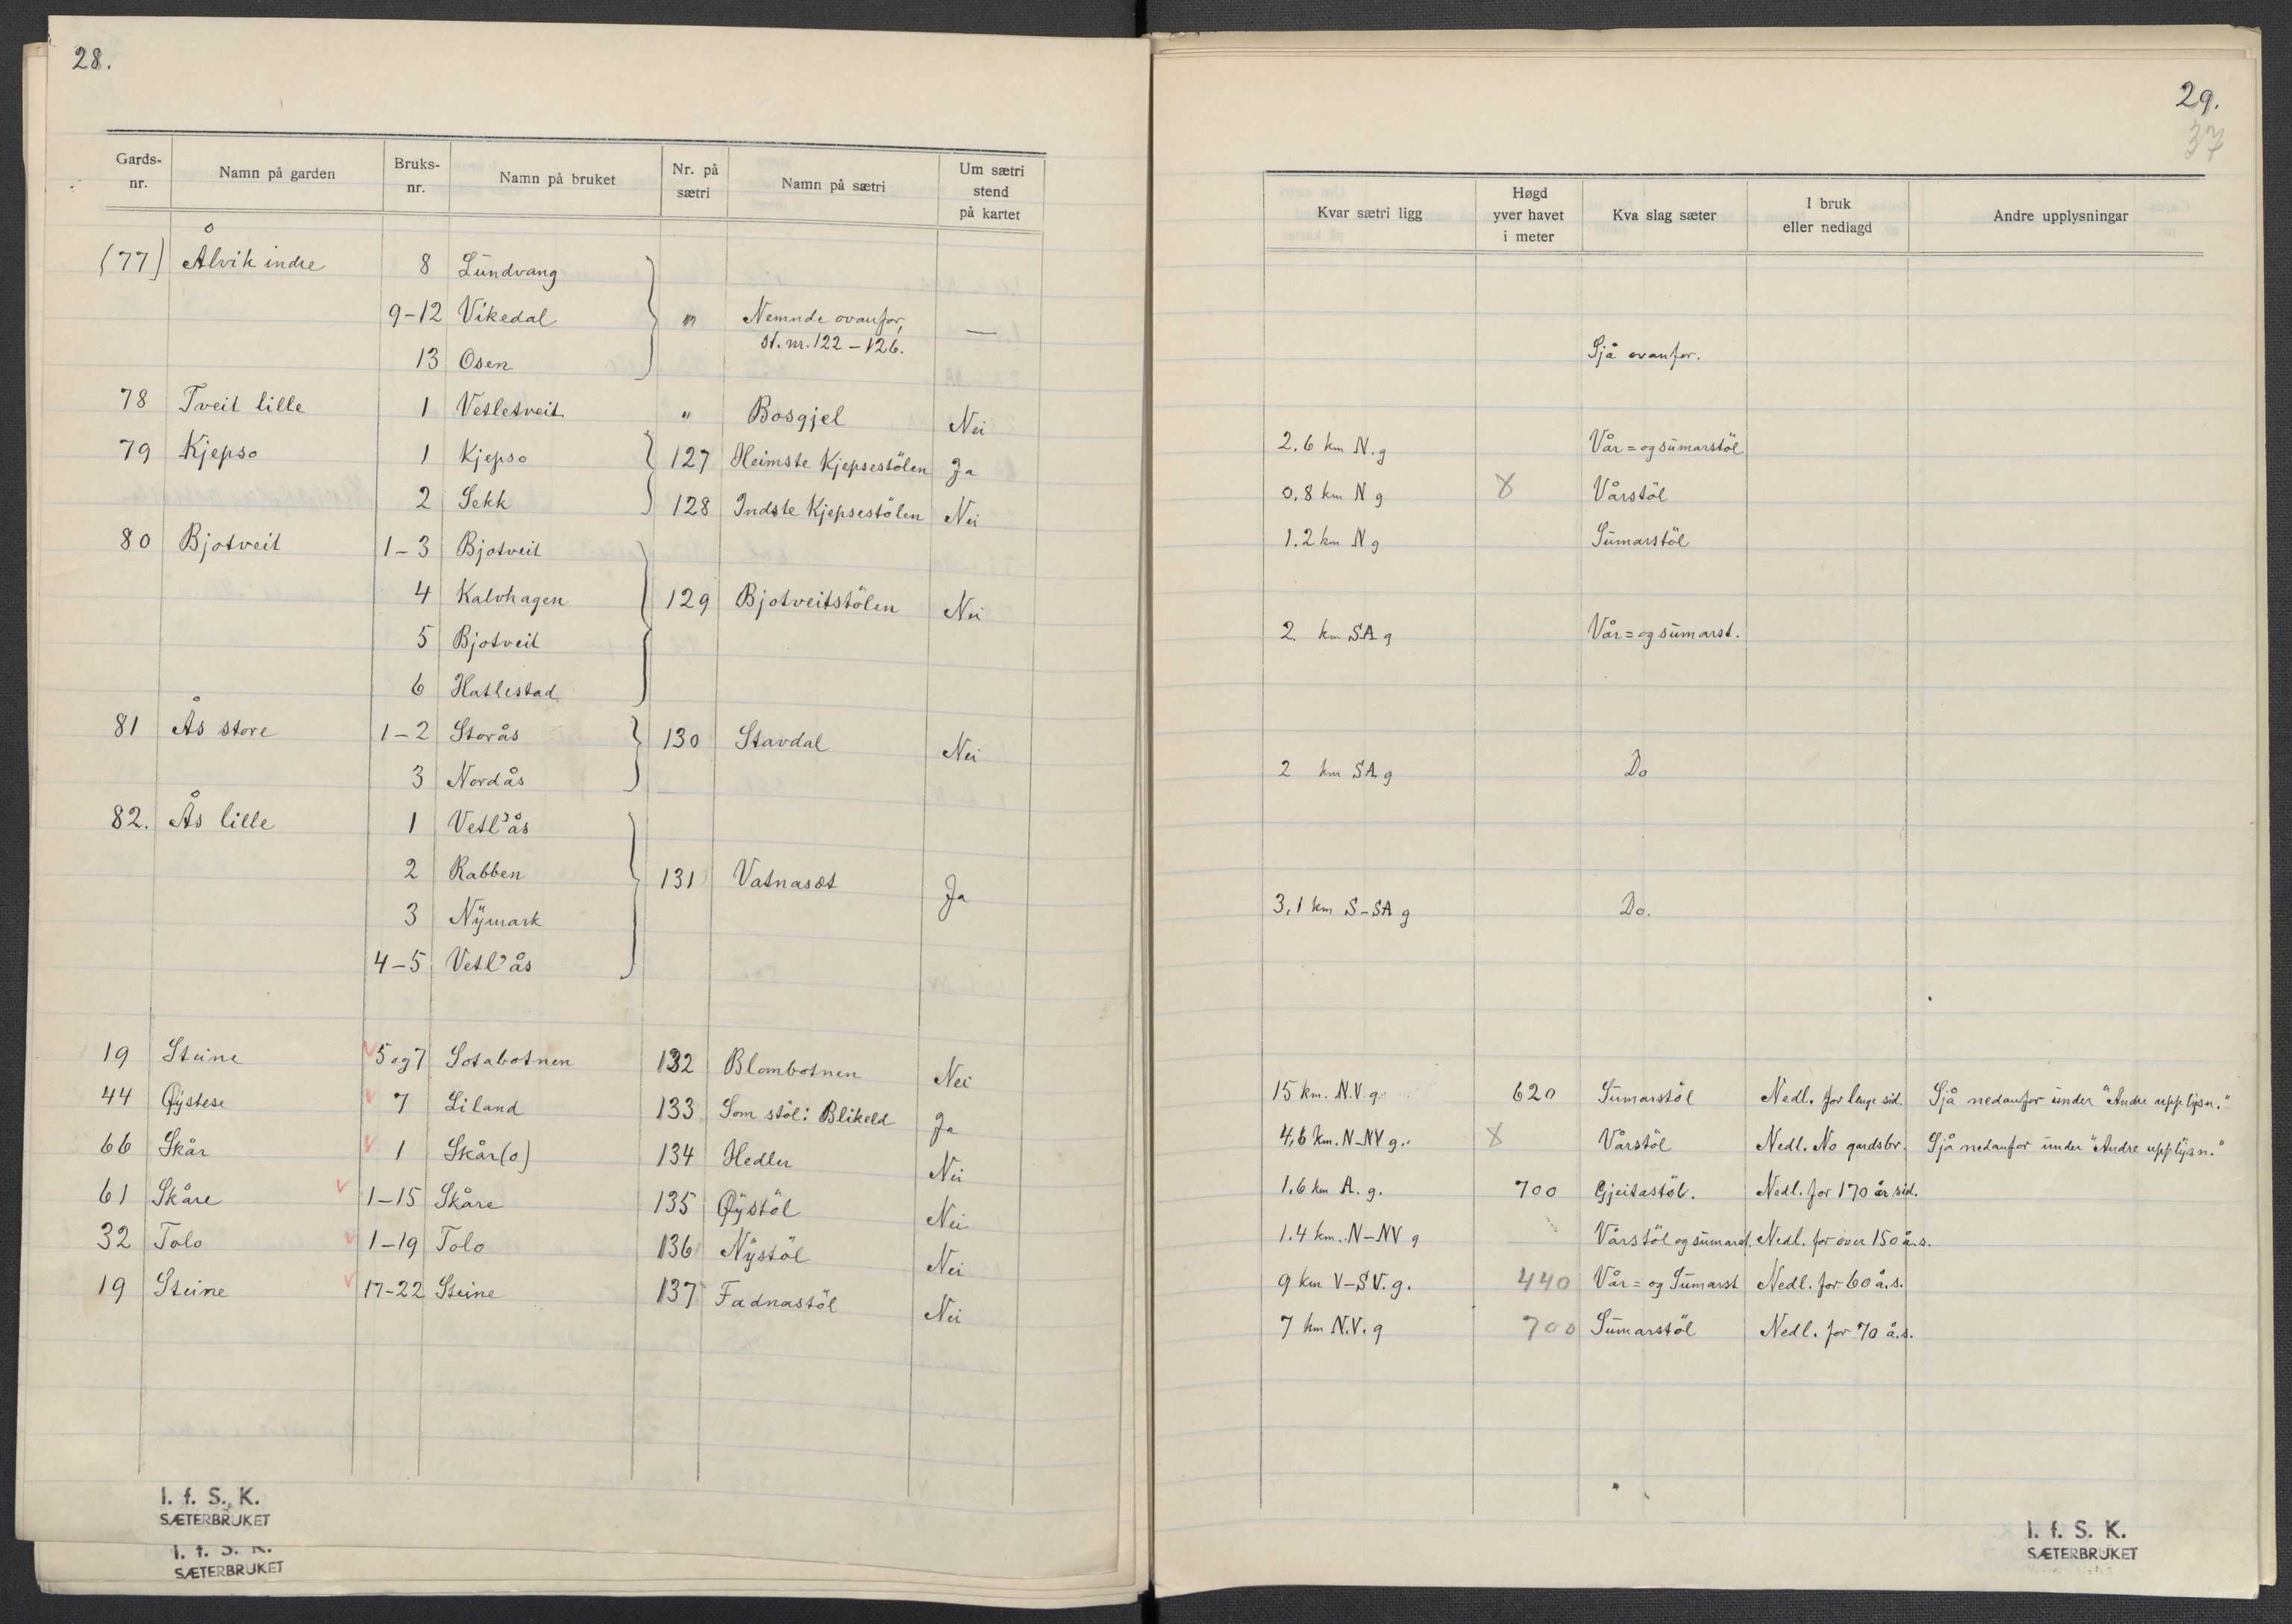 28.
Gards-nr. Namn på garden Bruks-nr. Namn på bruket Nr. på sætri Namn på sætri Um sætri stend på kartet
(77) Ålvik indre 8 Lundvang
9-12 Vikedal " Nemnde ovanfor, —
st. nr. 122-126.
13 Osen
78 Tveit lille 1 Vetletveit " Bosgjel Nei
79 Kjepso 1 Kjepso 127 Heimste Kjepsestölen Ja
2 Sekk 128 Indste Kjepsestölen Nei
80 Bjotveit 1-3 Bjotveit
4 Kalvhagen 129 Bjotveitstölen Nei
5 Bjotveit
6 Hatlestad
81 Ås store 1-2 Storås 130 Stavdal Nei
3 Nordås
82. Ås lille 1 Vetl'ås
2 Rabben 131 Vatnaset Ja
3 Nymark
4-5 Vetl'ås
19 Steine 5 og 7 Sotabotnen 132 Blombotnen Nei
44 Øystese 7 Liland 133 Som stöl: Blikeld Ja
66 Skår 1 Skår(o) 134 Hedler Nei
61 Skåre 1-15 Skåre 135 Øystöl Nei
32 Tolo 1-19 Tolo 136 Nystöl Nei
19 Steine 17-22 Steine 137 Fadnastöl Nei
I. f. S. K.
SÆTERBRUKET
I. f. S. K.
SÆTERBRUKET
29.
37
Kvar sætri ligg Høgd yver havet i meter Kva slag sæter I bruk eller nedlagd Andre upplysningar
Sjå ovanfor.
2.6 km N. g Vår= og sumarstöl
0.8 km N g X Vårstöl
1.2 km N g Sumarstöl
2. km SA g Vår= og sumarst.
2 km SA g Do
3,1 km S-SA g Do.
15 km. N.V. g. 620 Sumarstöl Nedl. for lenge sid. Sjå nedanfor under "Andre upplysn."
4,6 km. N-NV g. X Vårstöl Nedl. No gardsbr. Sjå nedanfor under "Andre upplysn."
1,6 km A. g. 700 Gjeitastöl. Nedl. for 170 år sid.
1.4 km. N-NV g Vårstöl og sumarst. Nedl. for over 150 å.s.
9 km V-SV. g. 440 Vår= og Sumarst Nedl. for 60 å.s.
7 km N.V. g 700 Sumarstöl Nedl. for 70 å.s.
I. f. S. K.
SÆTERBRUKET